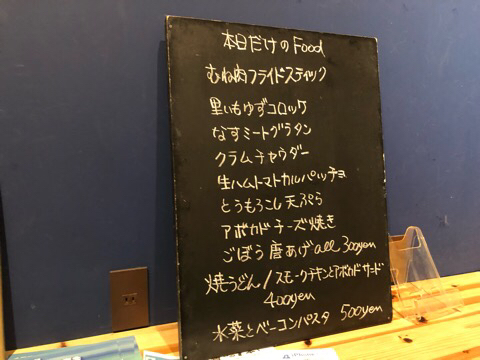 本日だけのFood
むね肉フライドスティック
里いもゆずコロッケ
なすミートグラタン
クラムチャウダー
生ハムトマトカルパッチョ
とうもろこし天ぷら
アボカドチーズ焼き
ごぼう唐あげall 300yen
焼うどん/スモークチキンとアボカドサード
400yen
水菜とベーコンパスタ 500yen